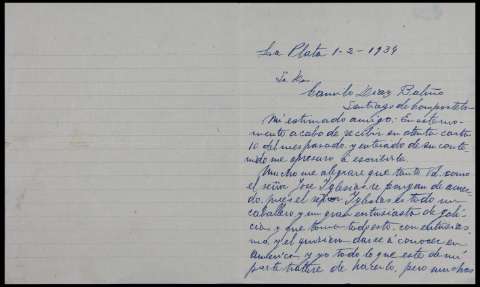 La Plata 1-2-1934
Sr. Don
Camilo Diaz Baliño
Santiago de Compostela
Mi estimado amigo: En este mo-
mento acabo de recibir su atenta carta
10 del mes pasado y enterado de su conte-
nido me apresuro a escribirle.
Mucho me alegrare que tanto Vd. como
el señor José Iglesias se pongan de acuer-
do, pues el señor Iglesias es todo un
caballero y un gran entusiasta de Gali-
cia, y que toma todo esto, con entusias-
mo, y el quisiera darse á conocer en
America, y yo todo lo que este de mi
parte tratare de hacerlo, pero muchas